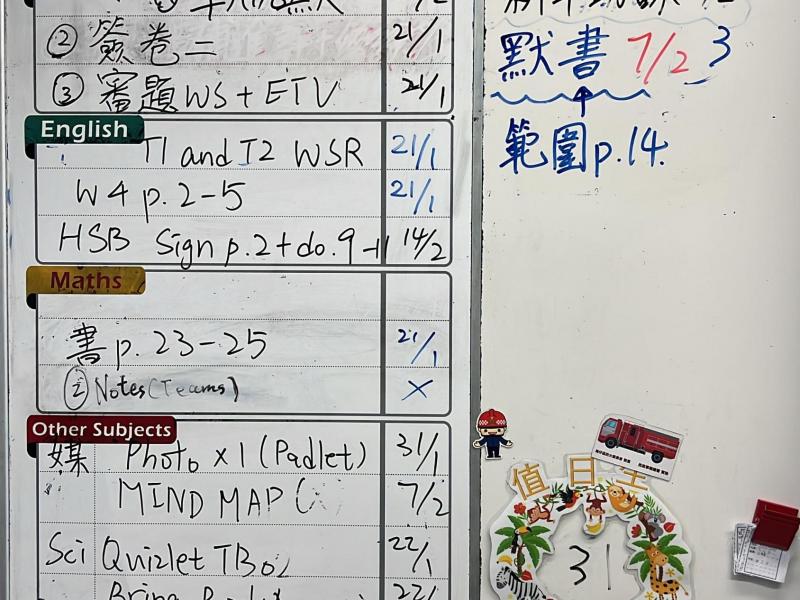 ② 簽卷二 21/1
③ 審題WS + ETV 21/1
English
T1 and T2 WSR 21/1
W4 p.2-5 21/1
HSB Sign p.2 + do.9-11 14/2
Maths
書 p.23-25 21/1
② Notes (Teams) ×
Other Subjects
媒 Photo x 1 (Padlet) 31/1
MIND MAP ( 7/2
Sci Quizlet TB02 22/1
Bring 22/1
默書 7/2 3
範圍p.14.
值日生
31